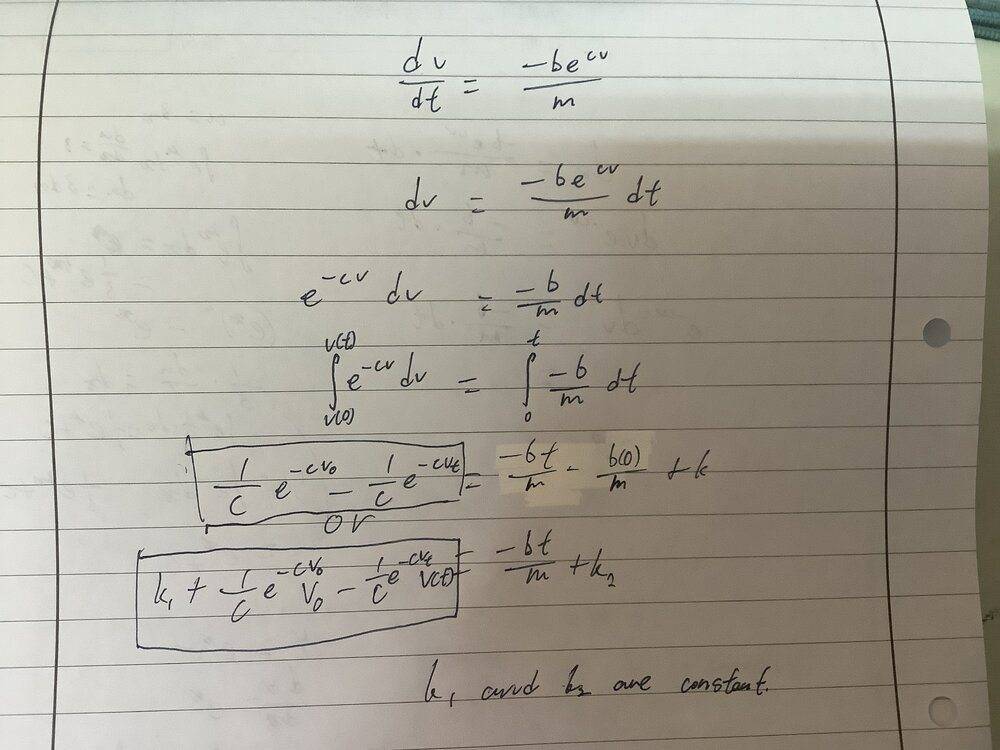 dv/dt = -be^{cv}/m
dv = -be^{cv}/m dt
e^{-cv} dv = -b/m dt
∫_{v(0)}^{v(t)} e^{-cv} dv = ∫_0^t -b/m dt
1/c e^{-cv_0} - 1/c e^{-cv_t} = -bt/m - b(0)/m + k
or
k_1 + 1/c e^{-cv_0} V_0 - 1/c e^{-cv_t} V(t) = -bt/m + k_2
k_1 annd k_2 are constant.